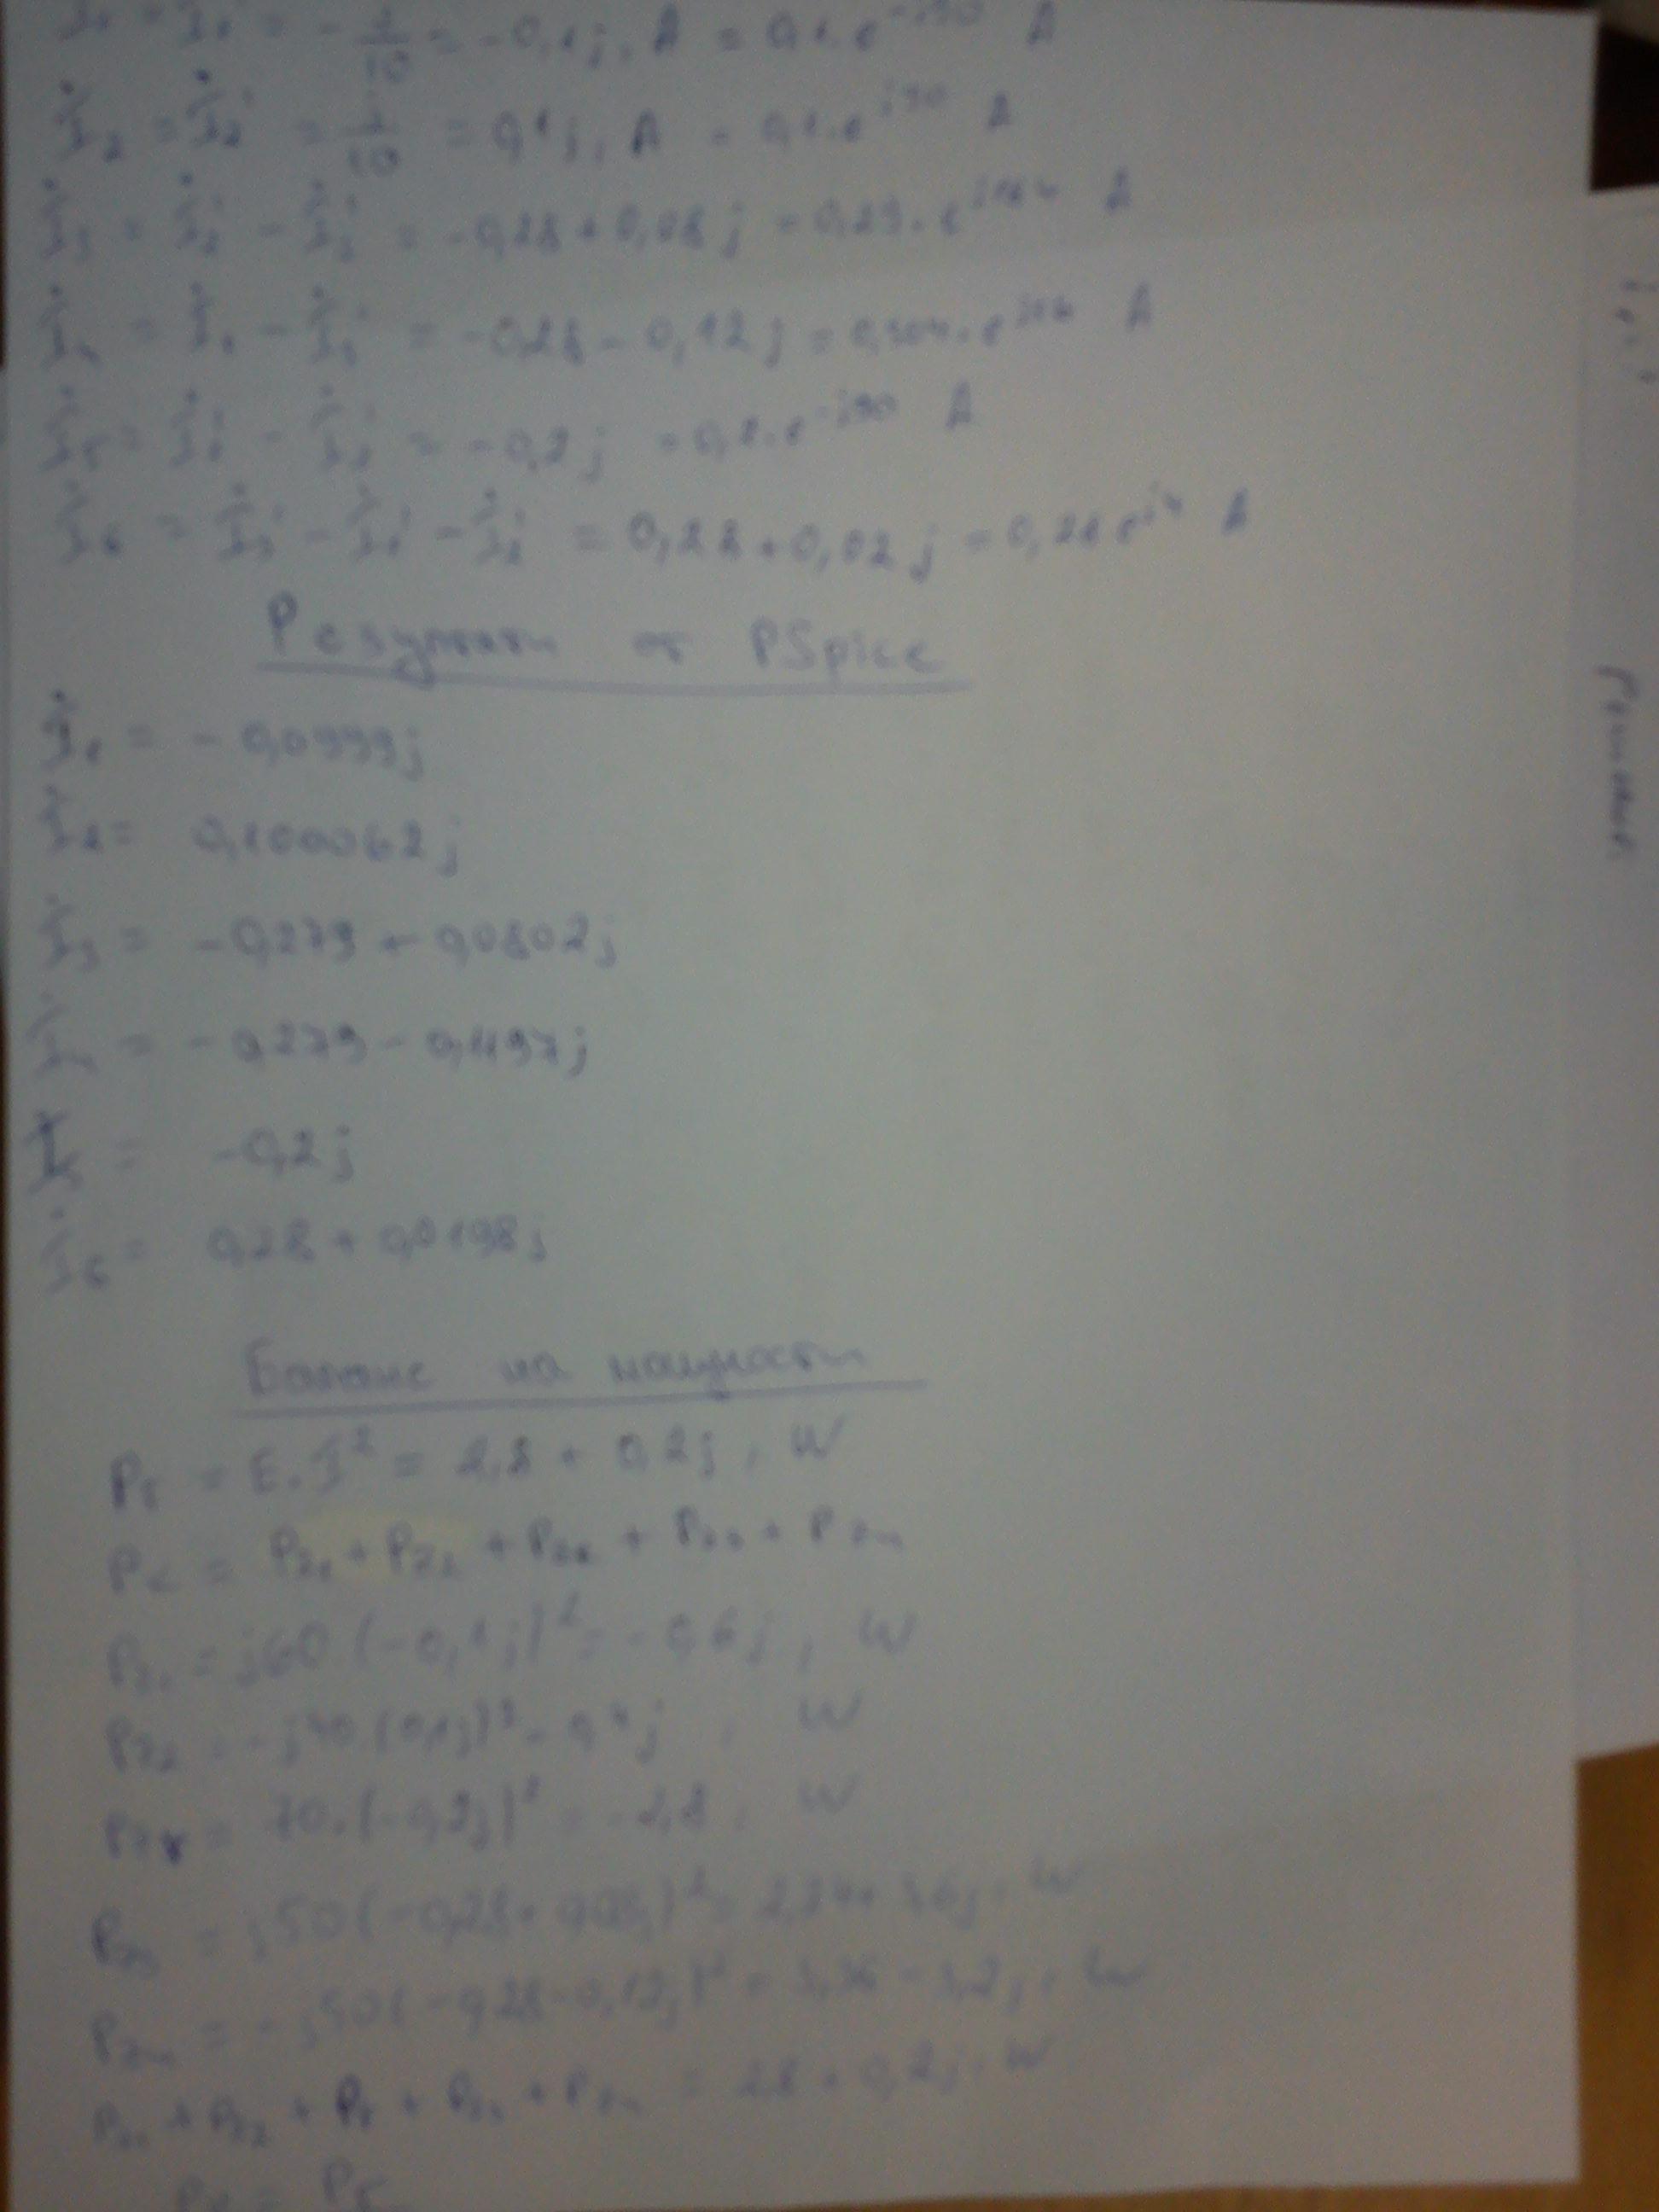 = - j/10 = -0,1j, A = 0,1.e^-j90 A
İ2 = İ2' = j/10 = 0,1j, A = 0,1.e^j90 A
İ3 = İ2' - İ3' = -0,28 + 0,08j = 0,29.e^j164 A
İ4 = İ1' - İ3' = -0,28 - 0,12j = 0,304.e^ A
İ5 = İ1' - İ2' = -0,2j = 0,2.e^-j90 A
İ6 = İ3' - İ1' - İ2' = 0,28 + 0,02j = 0,28 e^j4 A
Резултати от PSpice
İ1 = -0,0999j
İ2 = 0,100062j
İ3 = -0,279 + 0,0802j
İ4 = -0,279 - 0,1197j
İ5 = -0,2j
İ6 = 0,28 + 0,0198j
Решение
Баланс на мощности
= E.I² = 2,8 + 0,2j, W
= Pz1 + Pz2 + + Pz3 + Pz4
Pz1 = j60 (-0,1j)² = -0,6j, W
Pz2 = -j40 (0,1j)² = 0,4j, W
= 70.(-0,2j)² = -2,8, W
Pz3 = j50 (-0,28 + 0,08j)² = 2,24 + 3,6j, W
Pz4 = -j50 (-0,28 - 0,12j)² = 3,36 - 3,2j, W
Pz1 + Pz2 + + Pz3 + Pz4 = 2,8 + 0,2j, W